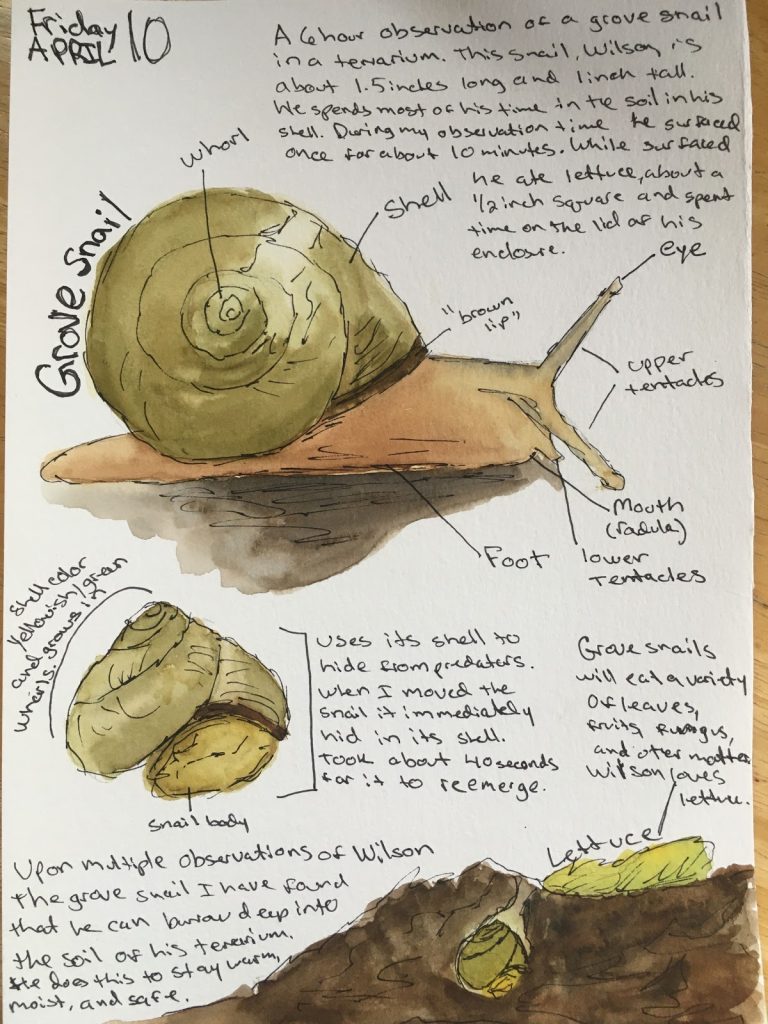 Friday
APRIL 10
A 6 hour observation of a grove snail
in a terrarium. This snail, Wilson, is
about 1.5 inches long and 1 inch tall.
He spends most of his time in the soil in his
shell. During my observation time he surfaced
once for about 10 minutes. While surfaced
he ate lettuce, about a
1/2 inch square and spent
time on the lid of his
enclosure.
Grove snail
whorl
shell
"brown
lip"
eye
upper
tentacles
Mouth
(radula)
lower
Tentacles
Foot
shell color
yellowish/green
and grows in
whorls.
snail body
uses its shell to
hide from predators.
when I moved the
snail it immediately
hid in its shell.
Took about 40 seconds
for it to reemerge.
Grove snails
will eat a variety
of leaves,
fruits, fungus,
and other matter.
Wilson loves
lettuce.
Lettuce
Upon multiple observations of Wilson
the grove snail I have found
that he can burrow deep into
the soil of his terrarium.
He does this to stay warm,
moist, and safe.